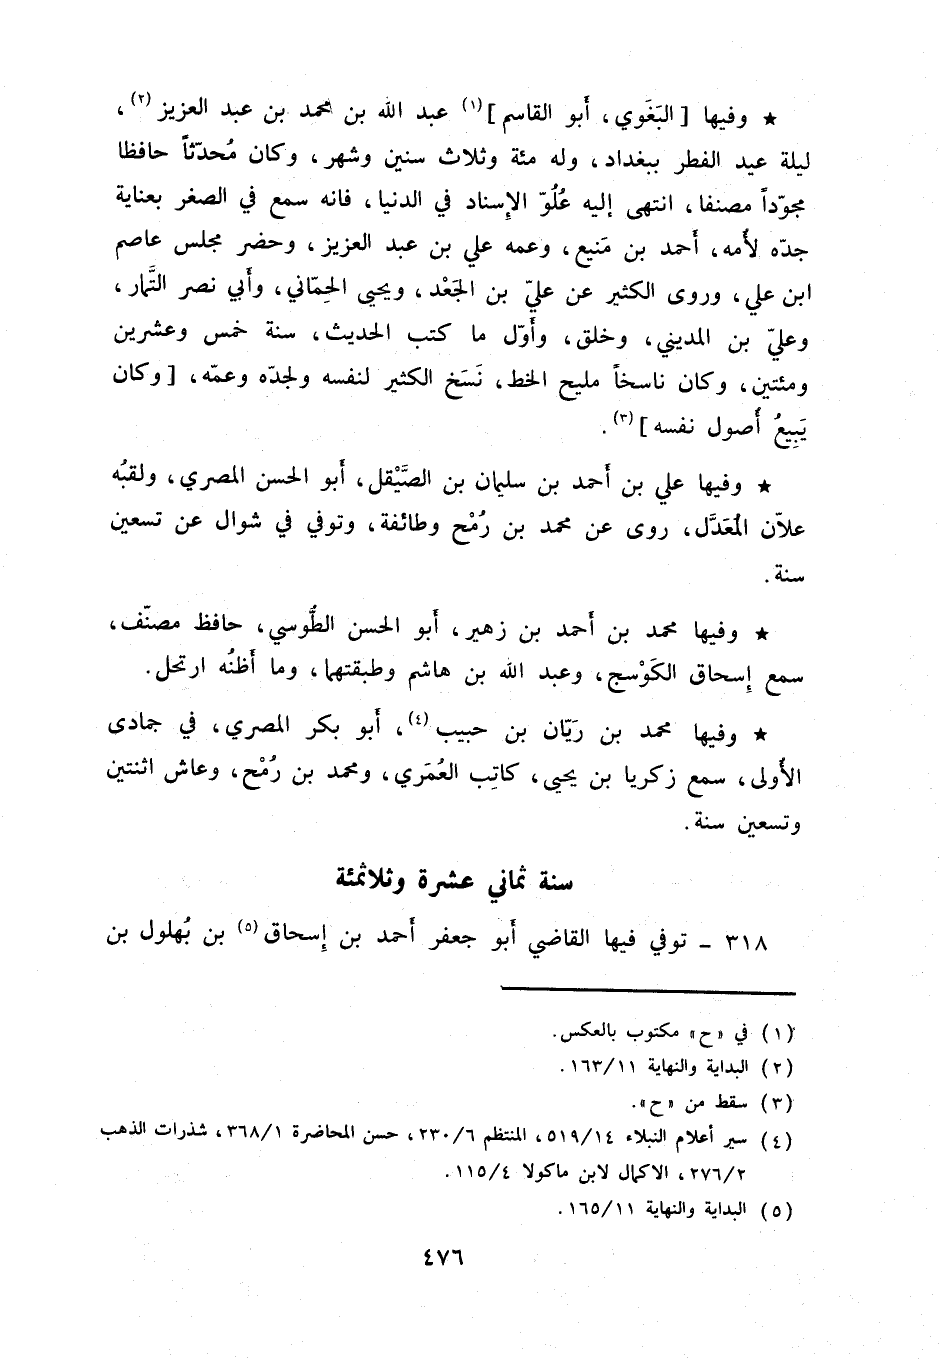 ★ وفيها [ البَغَوي، أَبو القاسم ](١) عبد الله بن محمد بن عبد العزيز(٢)،
ليلة عيد الفطر ببغداد، وله مئة وثلاث سنين وشهر، وكان مُحدّثاً حافظا
مجوّداً مصنفا، انتهى إليه عُلُوّ الإسناد في الدنيا، فانه سمع في الصغر بعناية
جدّه لأُمه، أَحمد بن مَنيع، وعمه علي بن عبد العزيز، وحضر مجلس عاصم
ابن علي، وروى الكثير عن عليّ بن الجَعْد، ويحيى الحِمّاني، وأَبي نصر التَّمار،
وعليّ بن المديني، وخلق، وأَوّل ما كتب الحديث، سنة خمس وعشرين
ومئتين، وكان ناسخاً مليح الخط، نَسَخ الكثير لنفسه ولجدّه وعمّه، [ وكان
يَبِيعُ أُصول نفسه ](٣).
★ وفيها علي بن أَحمد بن سليمان بن الصَّيْقل، أَبو الحسن المصري، ولقبُه
علاّن المُعَدَّل، روى عن محمد بن رُمْح وطائفة، وتوفي في شوال عن تسعين
سنة.
★ وفيها محمد بن أَحمد بن زهير، أَبو الحسن الطُّوسي، حافظ مصنّف،
سمع إِسحاق الكَوْسج، وعبد الله بن هاشم وطبقتهما، وما أَظنُه ارتحل.
★ وفيها محمد بن رَيّان بن حبيب(٤)، أَبو بكر المصري، في جمادى
الأُولى، سمع زكريا بن يحيى، كاتِب العُمَري، ومحمد بن رُمْح، وعاش اثنتين
وتسعين سنة.
سنة ثماني عشرة وثلاثمئة
٣١٨ ـ توفي فيها القاضي أَبو جعفر أَحمد بن إِسحاق(٥) بن بُهلول بن
(١) في «ح» مكتوب بالعكس.
(٢) البداية والنهاية ١٦٣/١١.
(٣) سقط من «ح».
(٤) سير أعلام النبلاء ٥١٩/١٤، المنتظم ٢٣٠/٦، حسن المحاضرة ٣٦٨/١، شذرات الذهب
٢٧٦/٢، الاكمال لابن ماكولا ١١٥/٤.
(٥) البداية والنهاية ١٦٥/١١.
٤٧٦